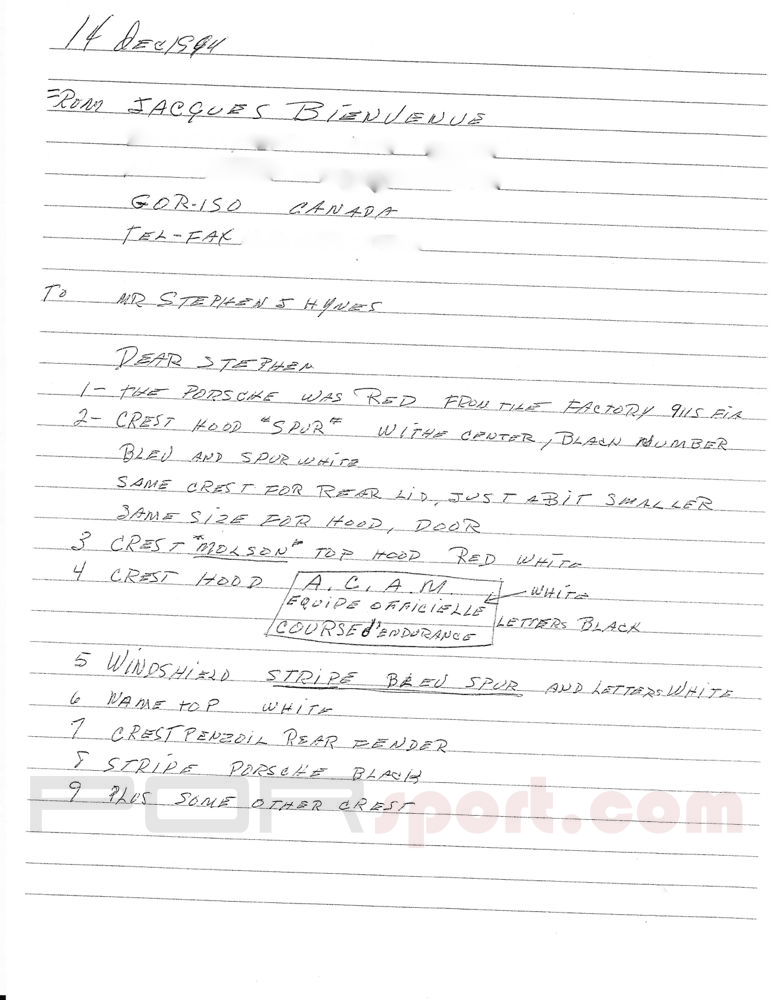 14 DEC 1994
FROM JACQUES BIENVENUE
GOR-1SO CANADA
TEL-FAX
TO MR STEPHEN J HYNES
DEAR STEPHEN
1- THE PORSCHE WAS RED FROM THE FACTORY 911S FIA
2- CREST HOOD "SPUR" WITHE CENTER, BLACK NUMBER
BLEU AND SPUR WHITE
SAME CREST FOR REAR LID, JUST A BIT SMALLER
SAME SIZE FOR HOOD, DOOR
3 CREST "MOLSON" TOP HOOD RED WHITE
4 CREST HOOD A.C.A.M. WHITE
EQUIPE OFFICIELLE
COURSE d'ENDURANCE LETTERS BLACK
5 WINDSHIELD STRIPE BLEU SPUR AND LETTERS WHITE
6 NAME TOP WHITE
7 CREST PENZOIL REAR FENDER
8 STRIPE PORSCHE BLACK
9 PLUS SOME OTHER CREST
PORsport.com